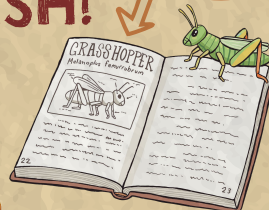 SH!
GRASSHOPPER
Melanoplus femurrubrum
22
23